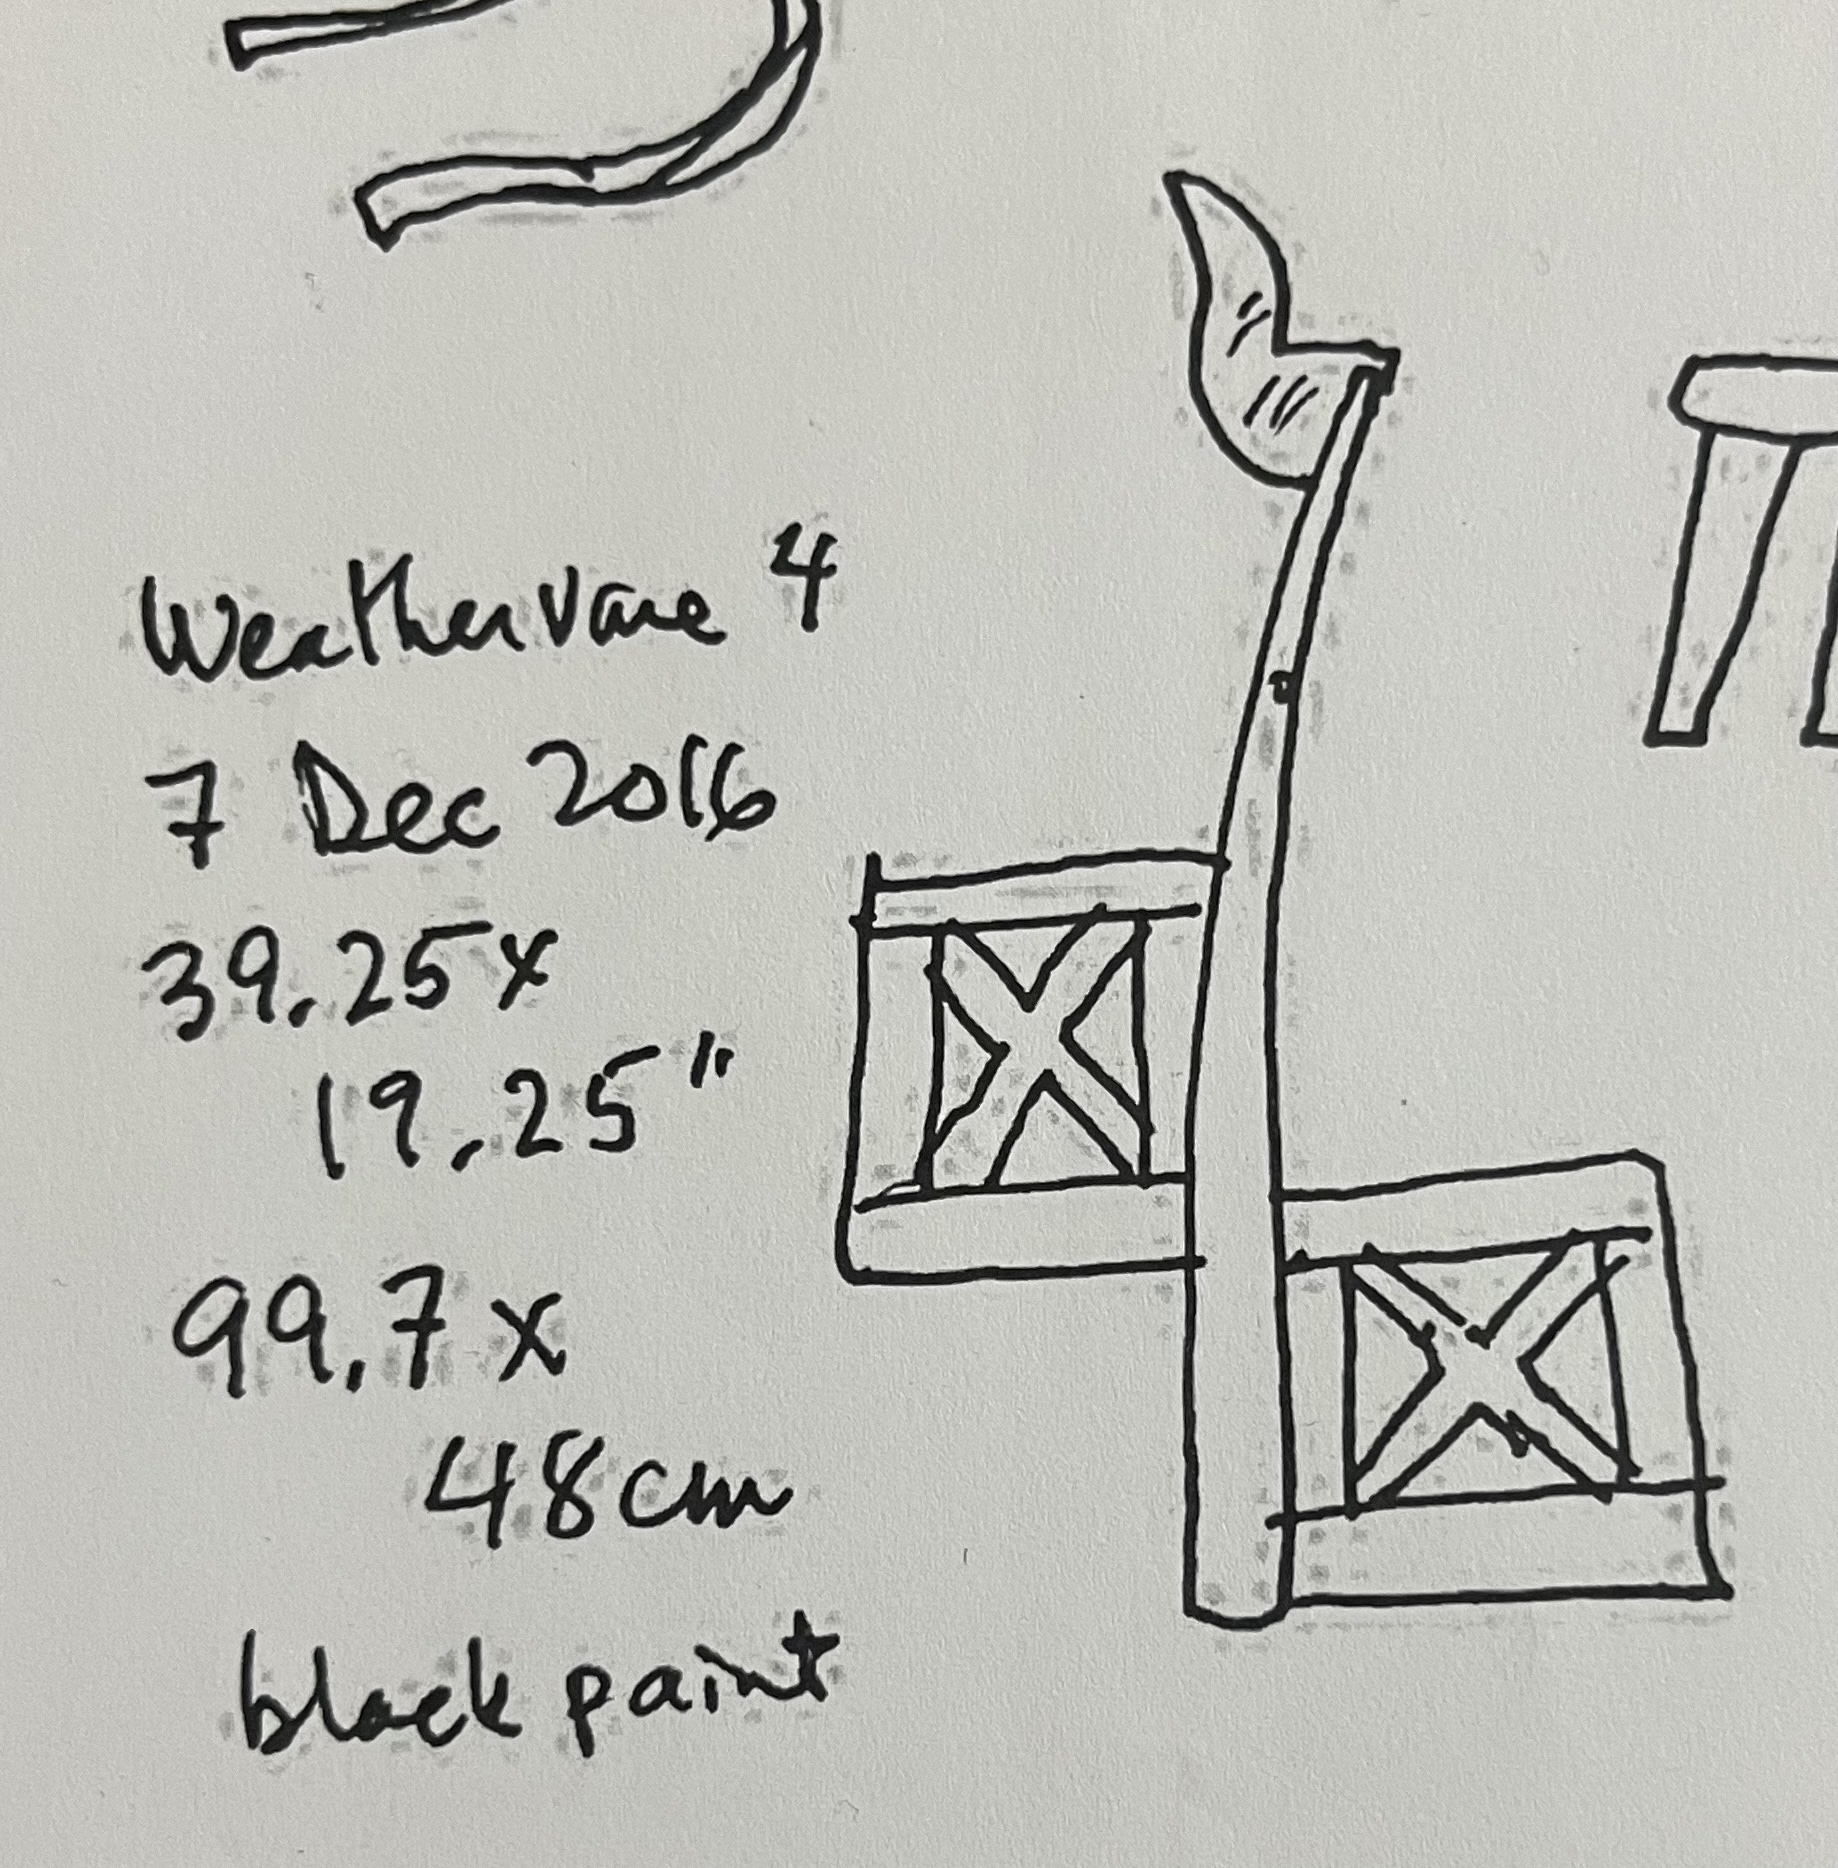 Weathervane 4
7 Dec 2016
39.25x
19.25"
99.7 x
48cm
black paint